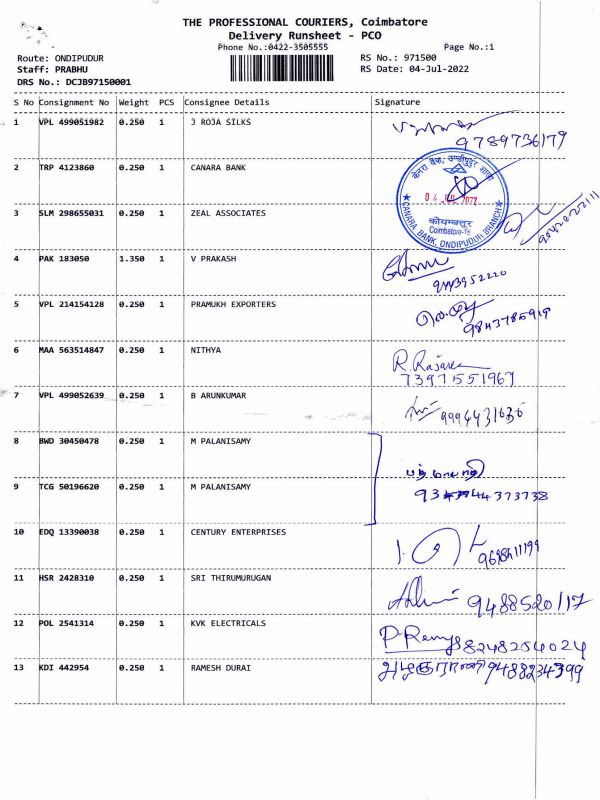 THE PROFESSIONAL COURIERS, Coimbatore
Delivery Runsheet - PCO
Phone No.:0422-3505555 Page No.:1
Route: ONDIPUDUR RS No.: 971500
Staff: PRABHU RS Date: 04-Jul-2022
DRS No.: DCJB97150001
S No Consignment No Weight PCS Consignee Details Signature
1 VPL 499051982 0.250 1 J ROJA SILKS
9789736179
2 TRP 4123860 0.250 1 CANARA BANK
केनरा बैंक, उण्डीपुदूर शाखा
04 JUL 2022
कोयम्बत्तूर
Coimbatore-16
CANARA BANK, ONDIPUDUR BRANCH
3 SLM 298655031 0.250 1 ZEAL ASSOCIATES
4 PAK 183050 1.350 1 V PRAKASH
5 VPL 214154128 0.250 1 PRAMUKH EXPORTERS
9843785919
6 MAA 563514847 0.250 1 NITHYA
R. Rajaree
73971551967
7 VPL 499052639 0.250 1 B ARUNKUMAR
9994431636
8 BWD 30450478 0.250 1 M PALANISAMY
9 TCG 50196620 0.250 1 M PALANISAMY
9344373738
10 EDQ 13390038 0.250 1 CENTURY ENTERPRISES
11 HSR 2428310 0.250 1 SRI THIRUMURUGAN
9488520117
12 POL 2541314 0.250 1 KVK ELECTRICALS
8248254024
13 KDI 442954 0.250 1 RAMESH DURAI
அழகுராணி 9488234399